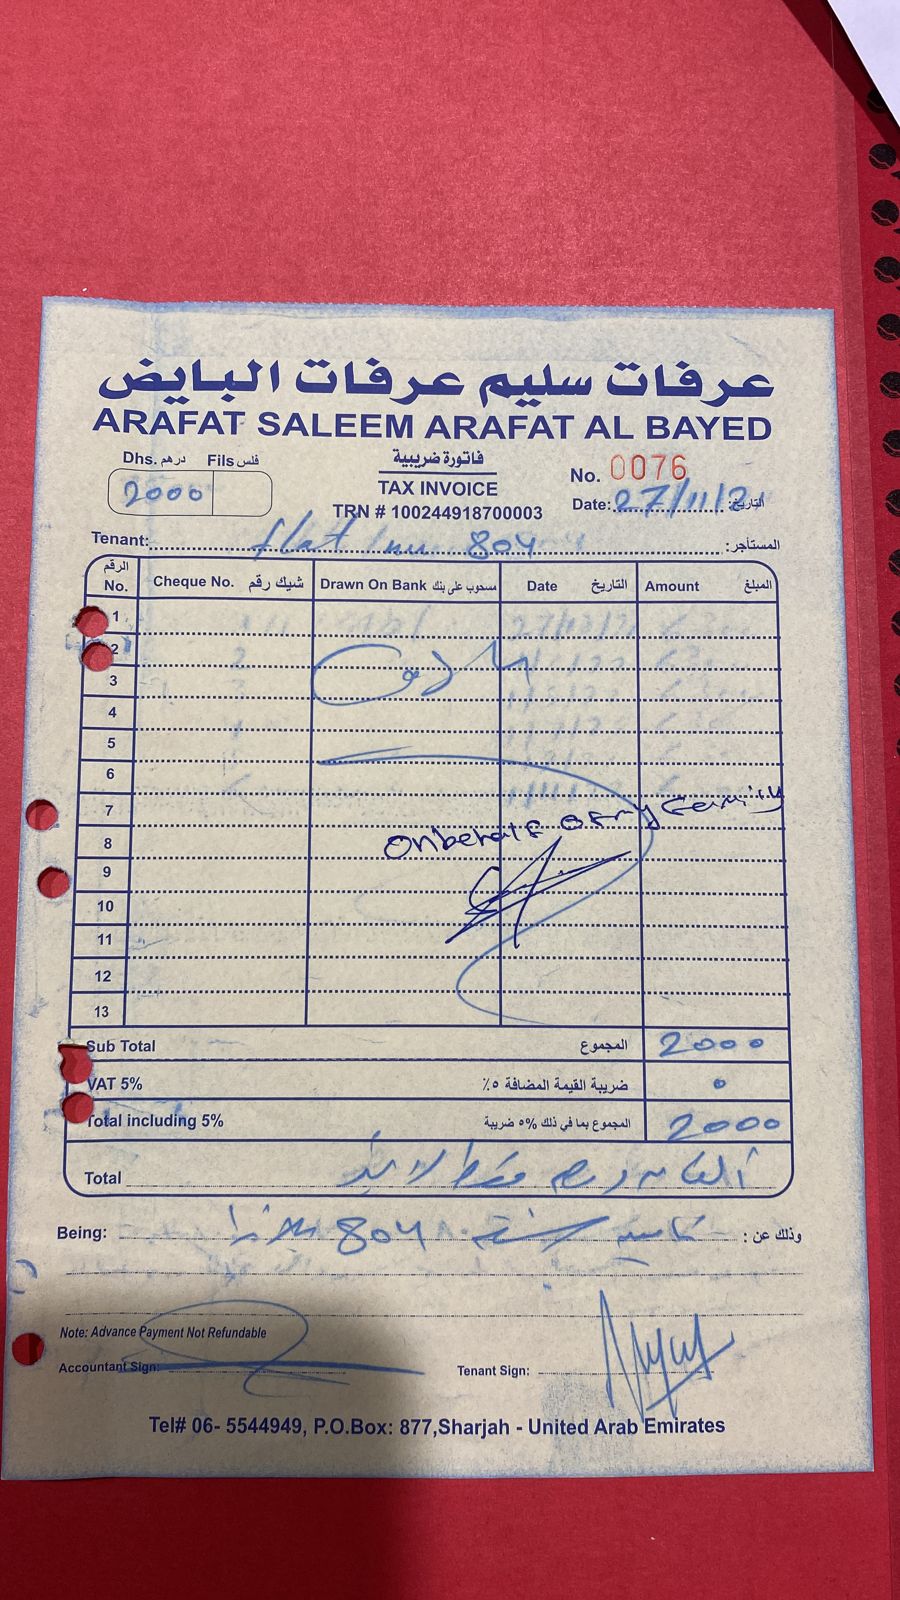 عرفات سليم عرفات البايض
ARAFAT SALEEM ARAFAT AL BAYED
Dhs. درهم Fils فلس
2000
فاتورة ضريبية
TAX INVOICE
TRN # 100244918700003
No. 0076
Date: 27/11/21 التاريخ:
Tenant: flat 804 المستأجر:
الرقم No. Cheque No. شيك رقم Drawn On Bank مسحوب على بنك Date التاريخ Amount المبلغ
1
2
3
4
5
6
7
On behalf of my family
8
9
10
11
12
13
Sub Total المجموع 2000
VAT 5% ضريبة القيمة المضافة ٥٪ 0
Total including 5% المجموع بما في ذلك ٥% ضريبة 2000
Total ألفان درهم فقط لا غير
Being: 804 وذلك عن :
Note: Advance Payment Not Refundable
Accountant Sign:
Tenant Sign:
Tel# 06- 5544949, P.O.Box: 877,Sharjah - United Arab Emirates